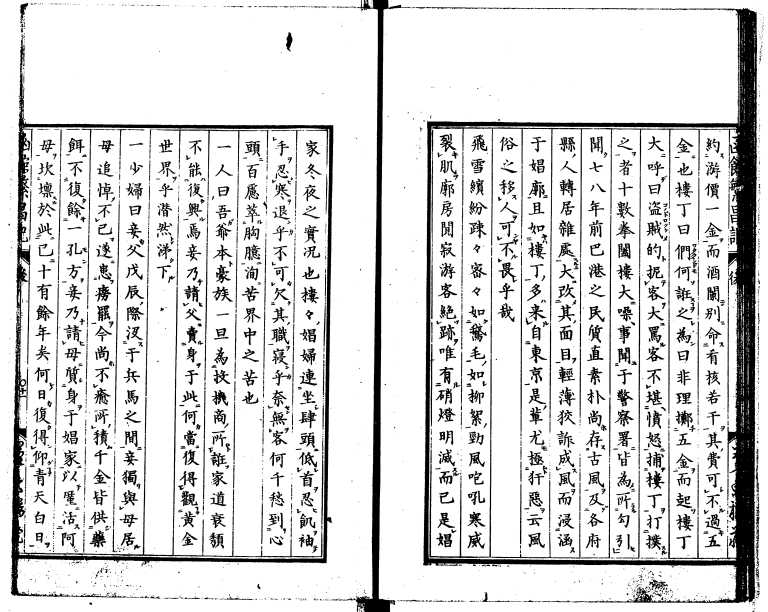 約游價一金而酒闌別命有核若干其費可不過五
金也樓丁曰們何誑之為曰非理擲五金而起樓丁
大呼曰盜賊的扼客大罵客不堪憤怒捕樓丁打撲
之者十數拳闔樓大噪事聞于警察署皆為所勾引
聞七八年前巴港之民質直素扑尚存古風及各府
縣人轉居雜處大改其面目輕薄狡訴成風而浸涵
于娼廓且如樓丁多来自東京是輩尤極奸惡云風
俗之移人可不畏乎哉
飛雪繽紛疎々密々如鵞毛如柳絮勁風咆吼寒威
裂肌廓房闃寂游客絕跡唯有硝燈明滅而已是娼
家冬夜之實況也樓々娼婦連坐肆頭低首忍飢袖
手忍寒退乎不可欠其職寢乎奈無客何千愁到心
頭百感萃胸臆洵苦界中之苦也
一人曰吾爺本豪族一旦為投機商所誑家道衰頽
不能復興焉妾乃請父賣身于此何當復得觀黃金
世界乎潸然涕下
一少婦曰妾父戊辰際沒于兵馬之間妾獨與母居
母追悼不已遂患癆罷今尚不癒所積千金皆供藥
餌不復餘一孔方妾乃請母質身于娼家以屋活阿
母坎壈於此已十有餘年矣何日復得仰青天白日